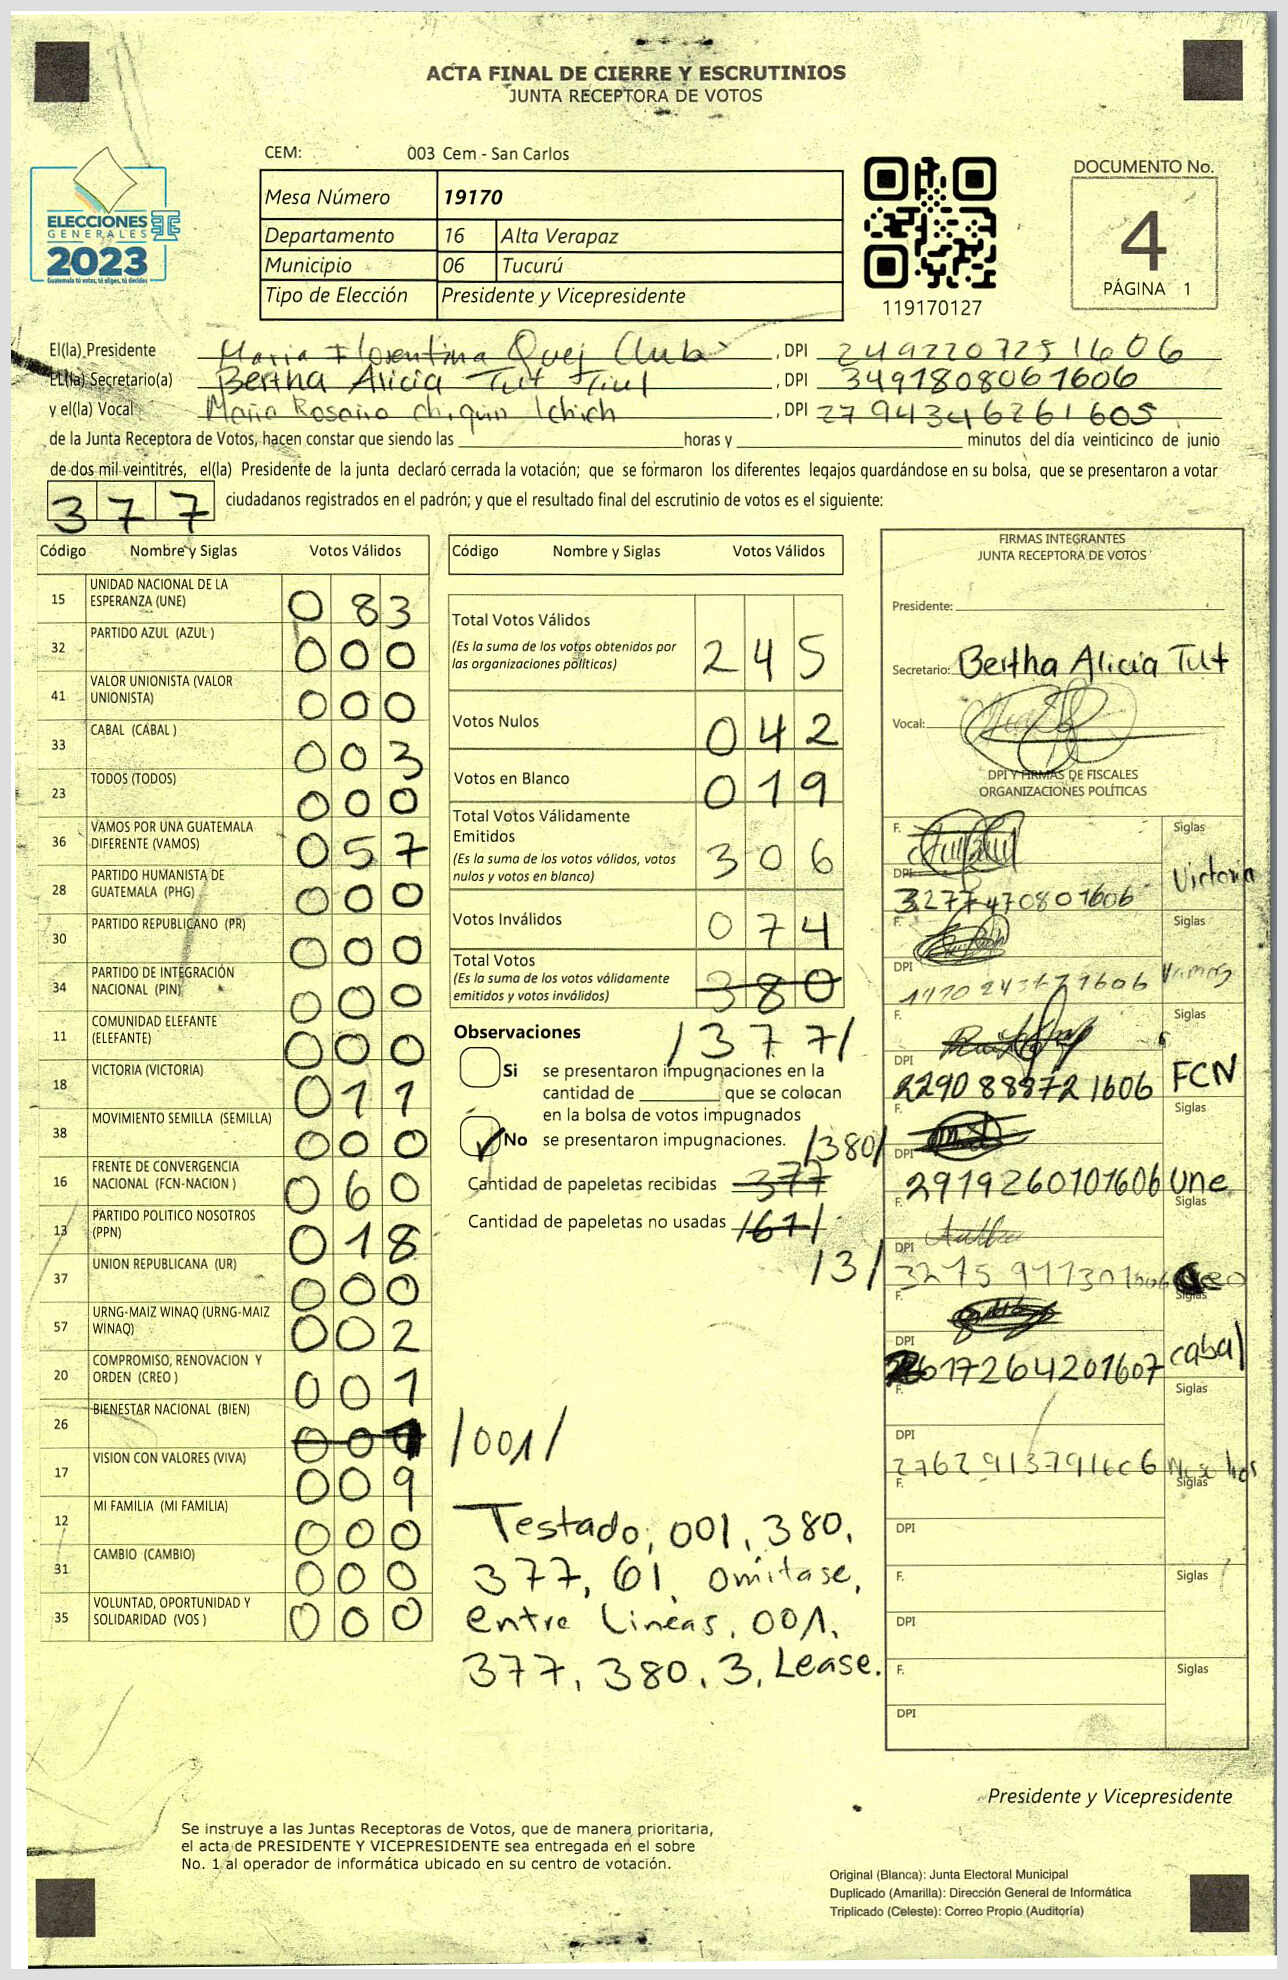 ACTA FINAL DE CIERRE Y ESCRUTINIOS
JUNTA RECEPTORA DE VOTOS
CEM: 003 Cem - San Carlos
Mesa Número 19170
Departamento 16 Alta Verapaz
Municipio 06 Tucurú
Tipo de Elección Presidente y Vicepresidente
119170127
DOCUMENTO No.
4
PÁGINA 1
ELECCIONES
GENERALES
2023
Guatemala tú votas, tú eliges, tú decides
El(la) Presidente Maria Florentina Quej Club , DPI 2492207251606
EL(la) Secretario(a) Bertha Alicia Tut Tiul , DPI 3491808061606
y el(la) Vocal Maria Rosario Chiquin Ichich , DPI 2794346261605
de la Junta Receptora de Votos, hacen constar que siendo las horas y minutos del día veinticinco de junio
de dos mil veintitrés, el(la) Presidente de la junta declaró cerrada la votación; que se formaron los diferentes legajos quardándose en su bolsa, que se presentaron a votar
377 ciudadanos registrados en el padrón; y que el resultado final del escrutinio de votos es el siguiente:
Código Nombre y Siglas Votos Válidos
15 UNIDAD NACIONAL DE LA ESPERANZA (UNE) 083
32 PARTIDO AZUL (AZUL ) 000
41 VALOR UNIONISTA (VALOR UNIONISTA) 000
33 CABAL (CABAL ) 003
23 TODOS (TODOS) 000
36 VAMOS POR UNA GUATEMALA DIFERENTE (VAMOS) 057
28 PARTIDO HUMANISTA DE GUATEMALA (PHG) 000
30 PARTIDO REPUBLICANO (PR) 000
34 PARTIDO DE INTEGRACIÓN NACIONAL (PIN) 000
11 COMUNIDAD ELEFANTE (ELEFANTE) 000
18 VICTORIA (VICTORIA) 011
38 MOVIMIENTO SEMILLA (SEMILLA) 000
16 FRENTE DE CONVERGENCIA NACIONAL (FCN-NACION ) 060
13 PARTIDO POLITICO NOSOTROS (PPN) 018
37 UNION REPUBLICANA (UR) 000
57 URNG-MAIZ WINAQ (URNG-MAIZ WINAQ) 002
20 COMPROMISO, RENOVACION Y ORDEN (CREO ) 001
26 BIENESTAR NACIONAL (BIEN) 001 /001/
17 VISION CON VALORES (VIVA) 009
12 MI FAMILIA (MI FAMILIA) 000
31 CAMBIO (CAMBIO) 000
35 VOLUNTAD, OPORTUNIDAD Y SOLIDARIDAD (VOS ) 000
Código Nombre y Siglas Votos Válidos
Total Votos Válidos 245
(Es la suma de los votos obtenidos por
las organizaciones políticas)
Votos Nulos 042
Votos en Blanco 019
Total Votos Válidamente
Emitidos 306
(Es la suma de los votos válidos, votos
nulos y votos en blanco)
Votos Inválidos 074
Total Votos 380
(Es la suma de los votos válidamente
emitidos y votos inválidos)
/377/
Observaciones
Si se presentaron impugnaciones en la
cantidad de que se colocan
en la bolsa de votos impugnados
No se presentaron impugnaciones.
/380/
Cantidad de papeletas recibidas 377
Cantidad de papeletas no usadas /61/
/3/
Testado, 001, 380,
377, 61, omitase,
entre Lineas, 001,
377, 380, 3, Lease.
FIRMAS INTEGRANTES
JUNTA RECEPTORA DE VOTOS
Presidente:
Secretario: Bertha Alicia Tut
Vocal:
DPI Y FIRMAS DE FISCALES
ORGANIZACIONES POLÍTICAS
F. Siglas
DPI 3277470801606 Victoria
F. Siglas
DPI Vamos
F. Siglas
DPI 2290888721606 FCN
F. Siglas
DPI 2919260101606 Une
F. Siglas
DPI 3215911301606 Creo
F. Siglas
DPI 2617264201607 cabal
F. Siglas
DPI 2762913791606 Nosotros
F. Siglas
DPI
F. Siglas
DPI
F. Siglas
DPI
Presidente y Vicepresidente
Se instruye a las Juntas Receptoras de Votos, que de manera prioritaria,
el acta de PRESIDENTE Y VICEPRESIDENTE sea entregada en el sobre
No. 1 al operador de informática ubicado en su centro de votación.
Original (Blanca): Junta Electoral Municipal
Duplicado (Amarilla): Dirección General de Informática
Triplicado (Celeste): Correo Propio (Auditoría)